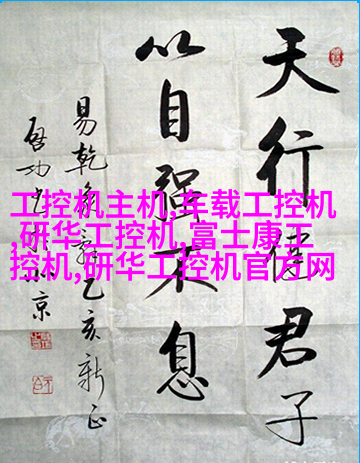 天行健君子
以自强不息
易乾象辞乙亥新正
啟功书于北京
工控机主机,车载工控机
,研华工控机,富士康工
控机,研华工控机官方网